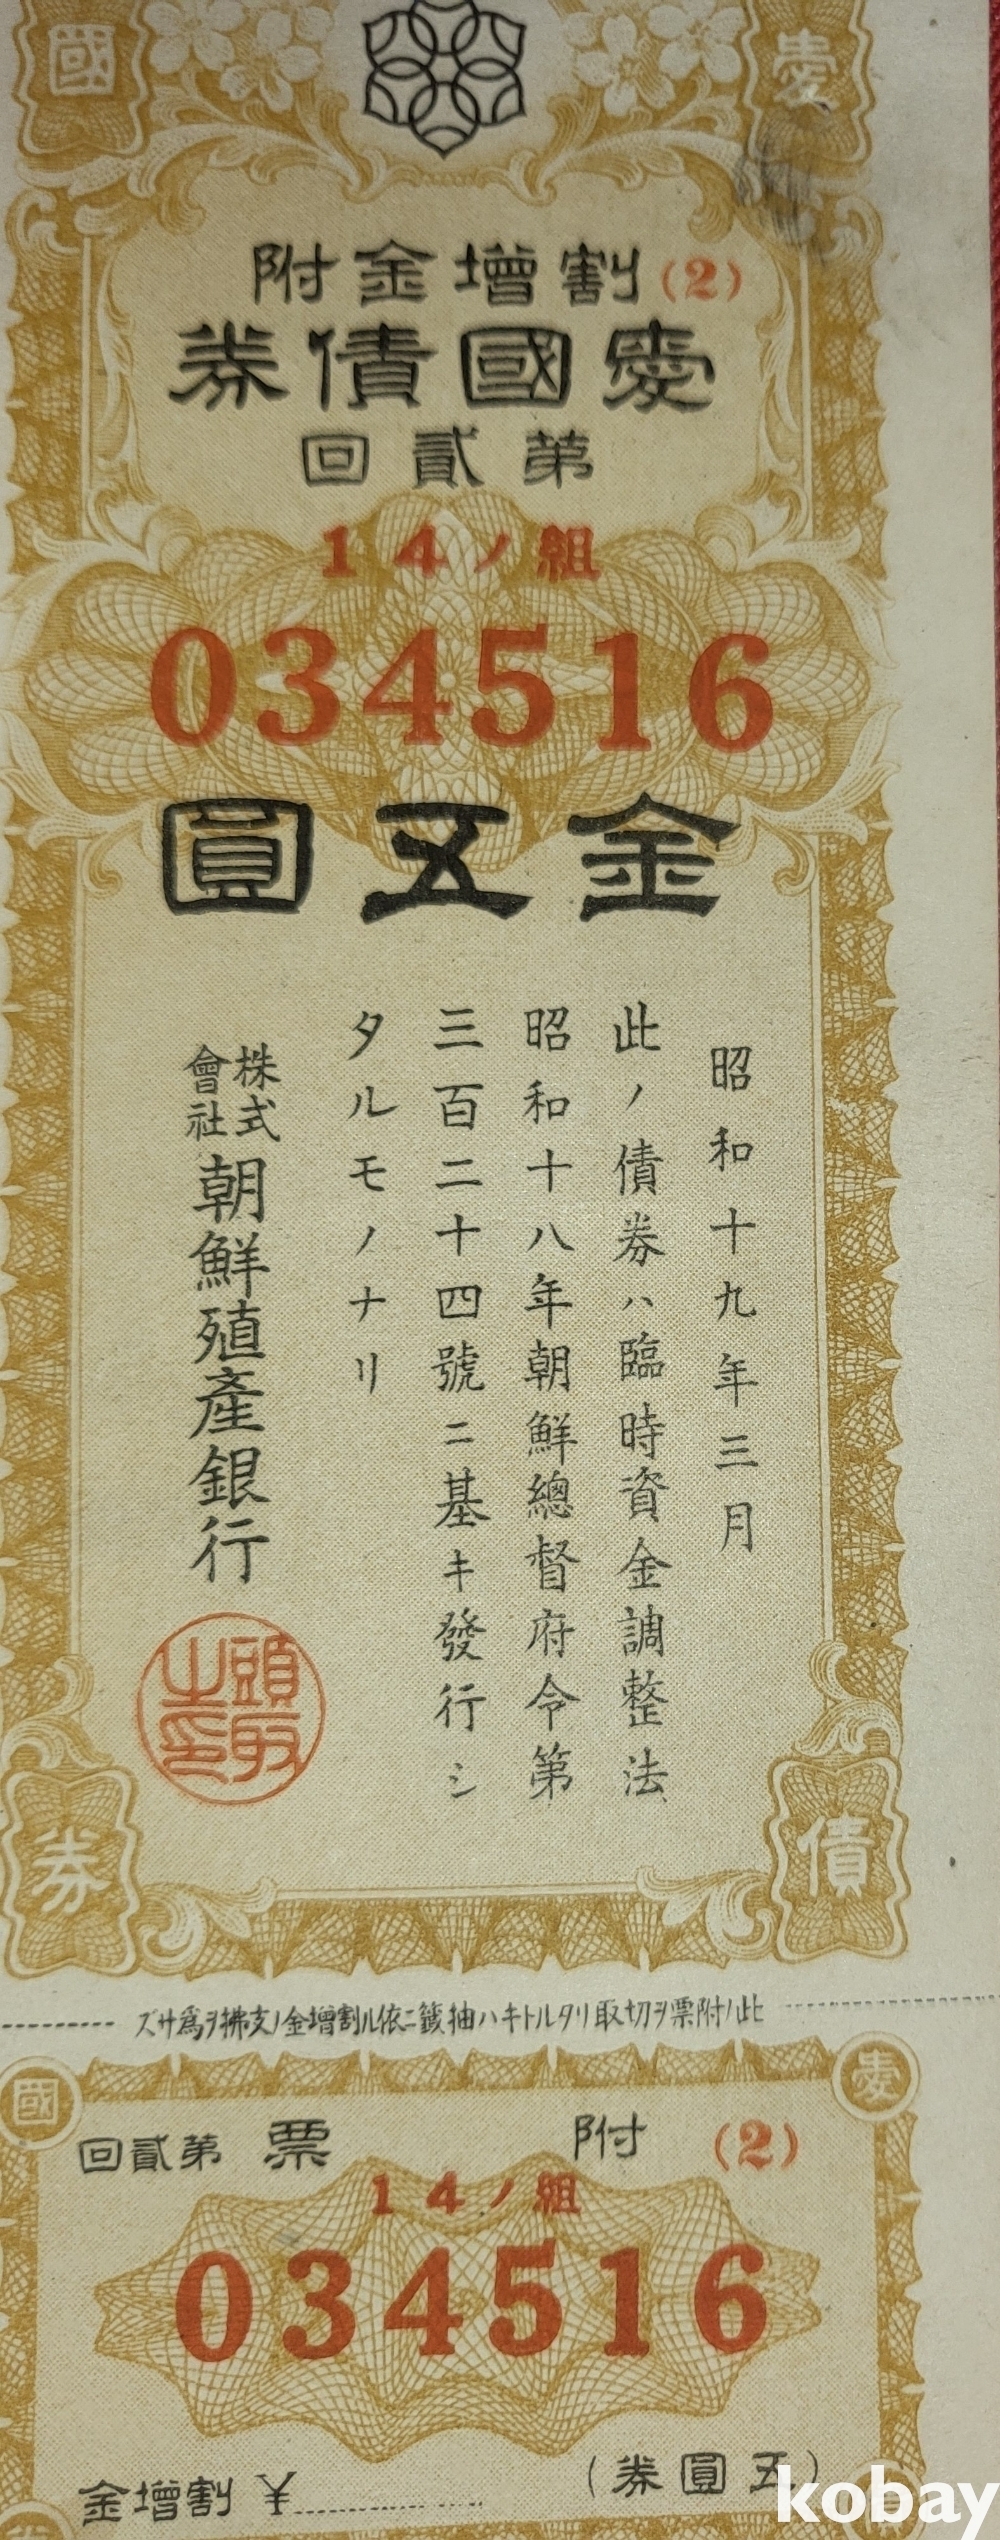 愛國
割增金附(2)
愛國債券
第貳回
14ノ組
034516
金五圓
昭和十九年三月
此ノ債券ハ臨時資金調整法
昭和十八年朝鮮總督府令第
三百二十四號ニ基キ發行シ
タルモノナリ
株式會社朝鮮殖產銀行
頭取之印
債券
此ノ附票ヲ切取リタルトキハ抽籤ニ依ル割增金ノ支拂ヲ爲サズ
愛國
附票第貳回(2)
14ノ組
034516
(五圓券)
割增金¥
kobay